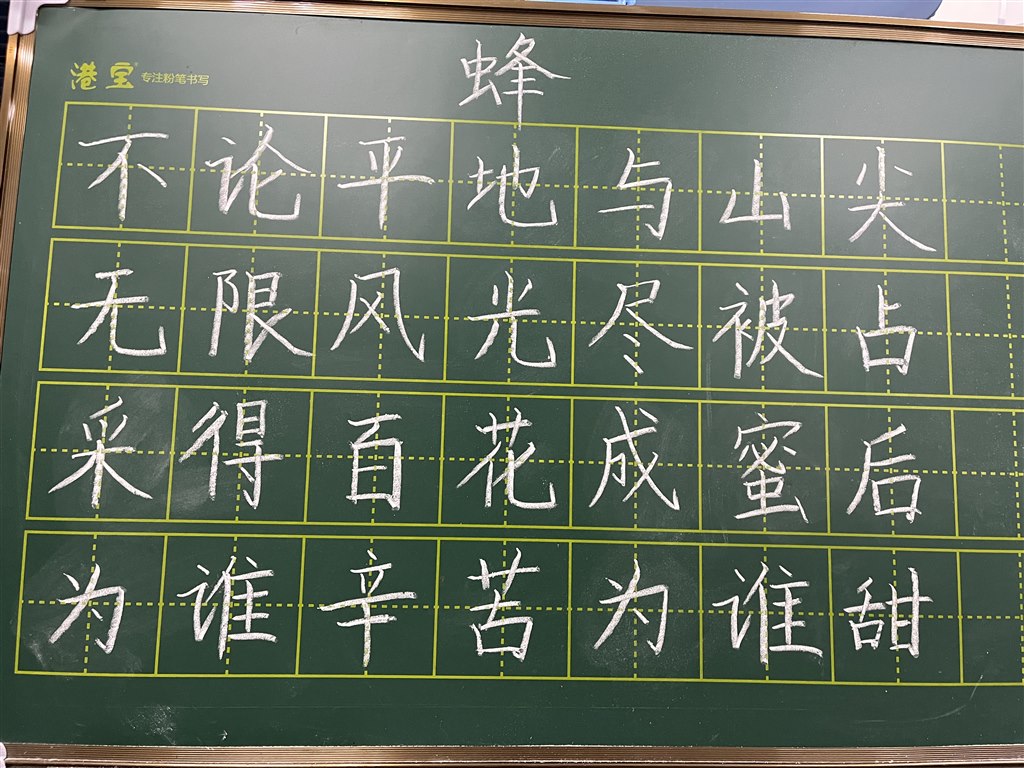 蜂
港宝 专注粉笔书写
不论平地与山尖
无限风光尽被占
采得百花成蜜后
为谁辛苦为谁甜